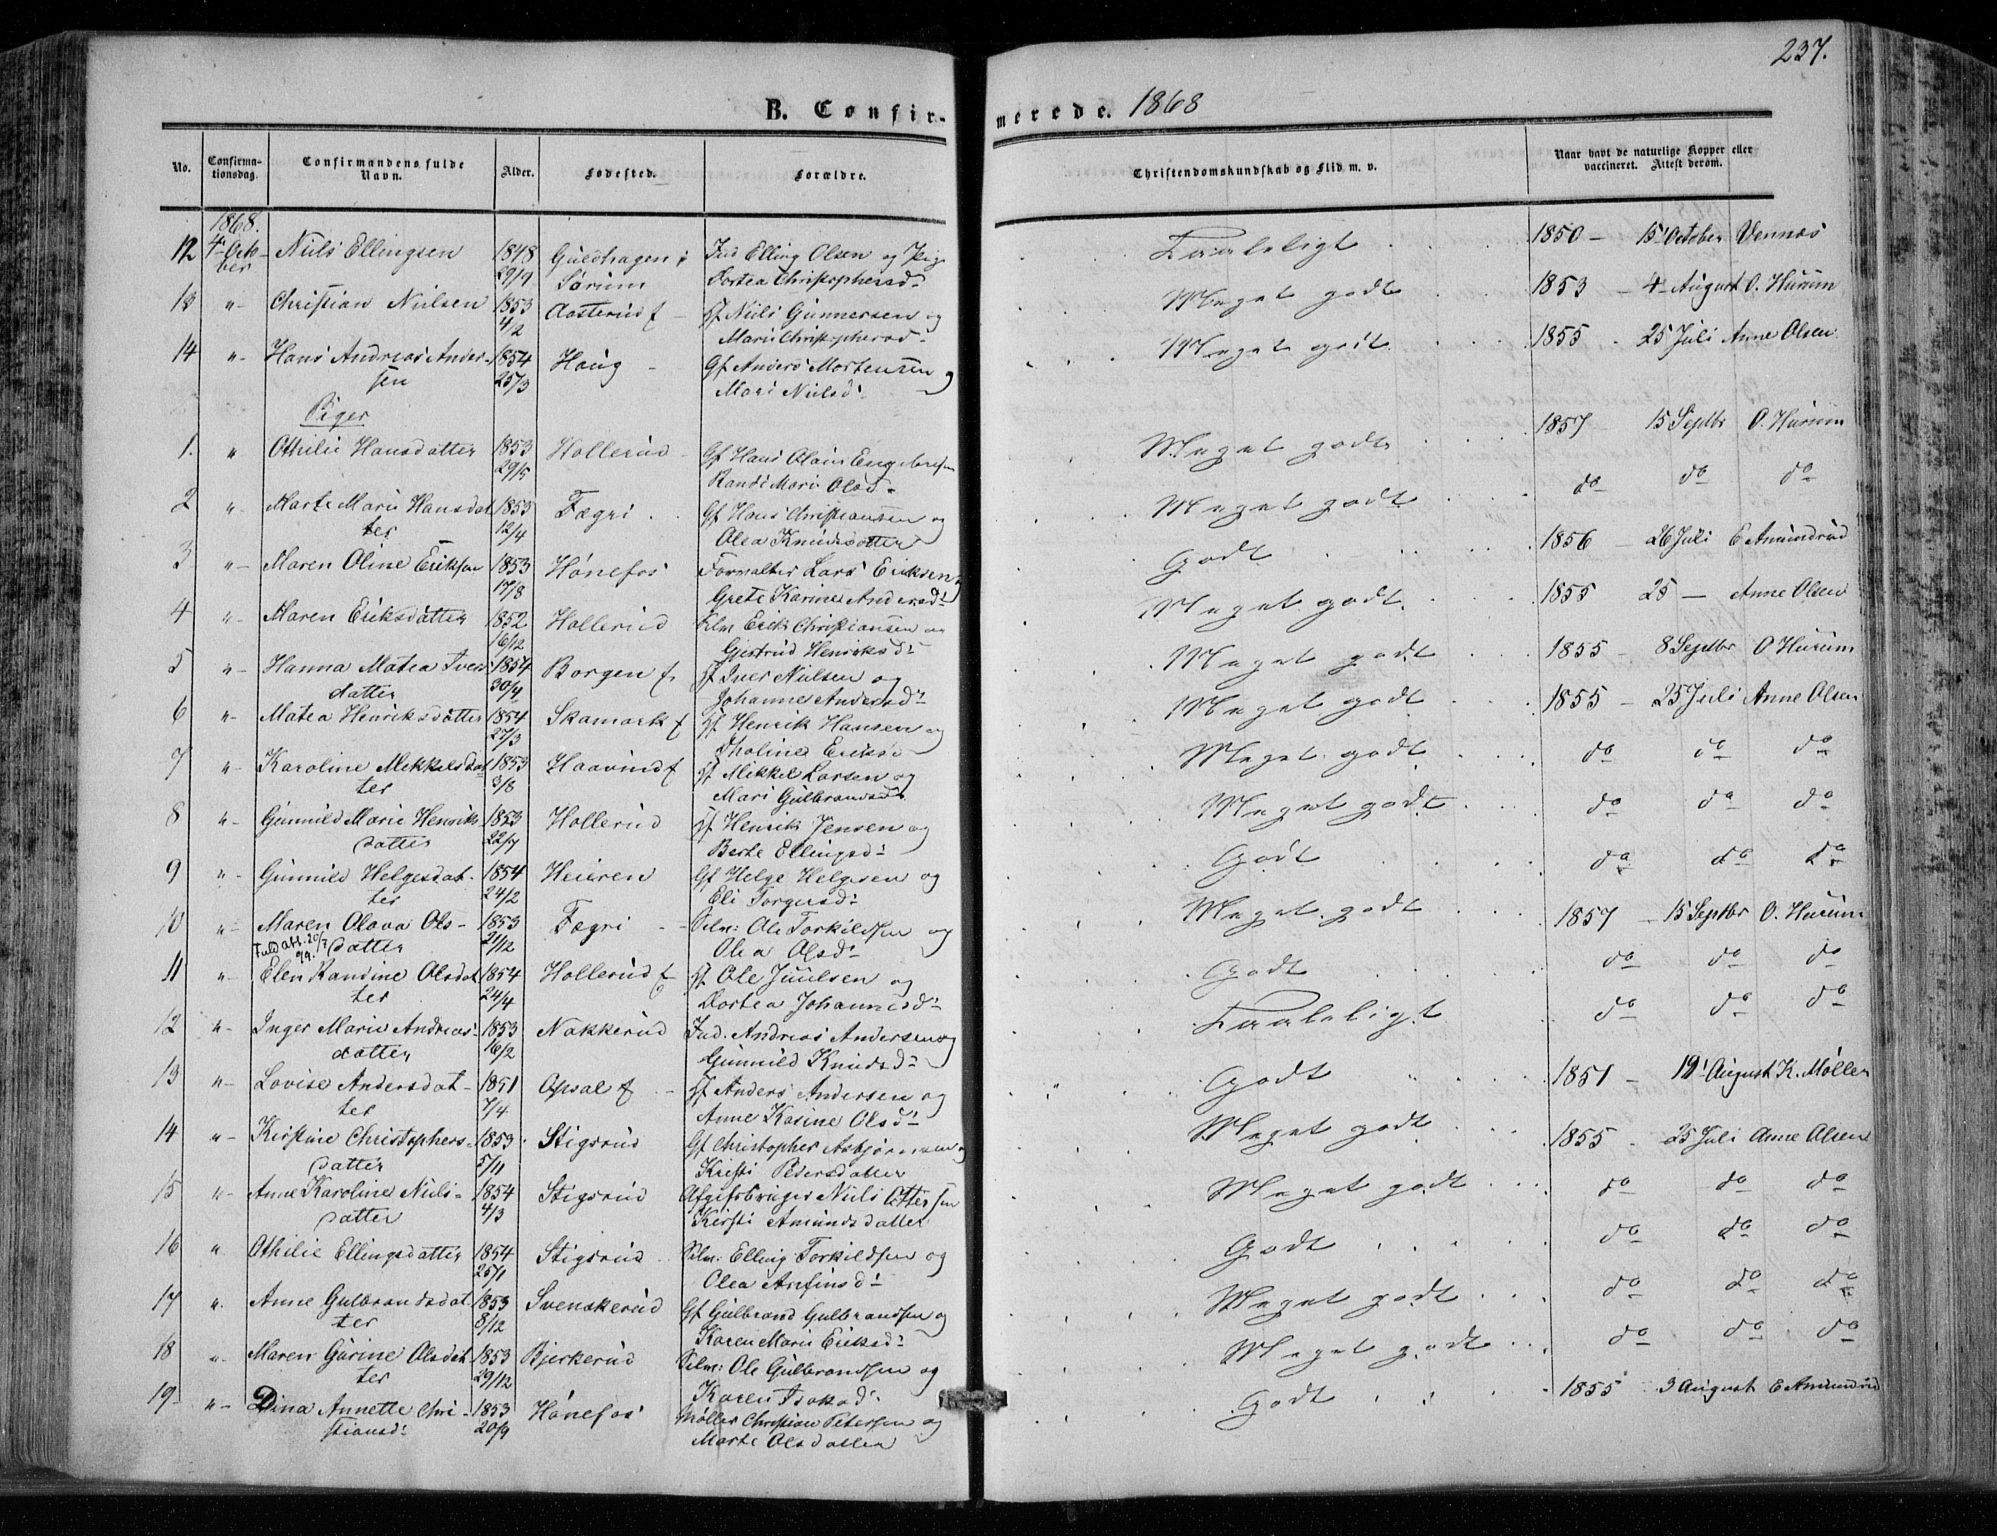 237.
B. Confir- merede. 1868
No. Confirma-tionsdag. Confirmandens fulde Navn. Alder. Fødested. Forældre. Christendomskundskab og Flid m. v. Naar havt de naturlige Kopper eller vaccineret. Attest derom.
1868.
12 4 Octo- Niels Ellingsen 1848 Guldhagen i Ind Elling Olsen og Pig Taaleligt 1850 - 15 October Vennæs
ber 29/9 Sørum Dortea Christophersd:
13 " Christian Nielsen 1853 Aasterud f Gf Niels Gunnersen og Meget godt 1853 - 4 August O. Hurum
4/2 Mari Christophersd:
14 " Hans Andreas Ander- 1854 Haug Gf Anders Mortensen og Meget godt 1855 - 25 Juli Anne Olsen
sen 25/3 Mari Nielsd:
Piger
1. " Othilie Hansdatter 1853 Hollerud Gf Hans Olain Engebretsen Meget godt 1857 - 15 Septbr O. Hurum
29/5 Randi Mari Olsd:
2 " Marte Marie Hansdat 1853 Fægri Gf Hans Christiansen og Meget godt do do do
ter 12/4 Olea Knudsdatter
3 " Maren Oline Eriksen 1853 Hønefos Forvalter Lars Eriksen Godt 1856 - 26 Juli E Amundrud
17/8 Grete Karine Andersd:
4 " Maren Eriksdatter 1852 Hollerud Selv Erik Christiansen og Meget godt 1855 25 — Anne Olsen
16/12 Gjertrud Henriksd:
5 " Hanna Matea Iver 1854 Borgen f Gf Iver Nielsen og Meget godt 1855 - 8 Septbr O Hurum
datter 30/4 Johanne Andersd:
6 " Matea Henriksdatter 1854 Skamark f Gf Henrik Hansen og Meget godt 1855 - 25 Juli Anne Olsen
27/3 Tholine Eriksd
7 " Karoline Mekkelsdat 1853 Haavind f Gf Mikkel Larsen og Meget godt do do do
ter 3/8 Mari Gulbrandsd:
8 " Gunnild Marie Henriks 1853 Hollerud Gf Henrik Jensen og Meget godt do do do
datter Berte Ellingsd:
9 " Gunnild Helgesdat 1854 Heieren Gf Helge Helgesen og Godt do do do
ter 24/2 Eli Torgersd:
10 " Maren Olava Ols- 1853 Fægri Selv: Ole Torkildsen og Meget godt 1857 - 15 Septbr O. Hurum
datter 21/12 Olea Olsd:
11 " Elen Randine Olsdat 1854 Hollerud f Gf Ole Juulsen og Godt do do do
ter 24/4 Dortea Johannesd:
12 " Inger Marie Andreas 1853 Nakkerud Ind. Andreas Andersen og Taaleligt do do do
datter 16/2 Gunnild Knudsd:
13 " Lovise Andersdat- 1851 Opsal f Gf Anders Andersen og Godt 1851 - 19 August K. Møller
ter 7/4 Anne Karine Olsd:
14 " Kirstine Christophers- 1853 Stigsrud Gf Christopher Asbjørnsen og Meget godt 1855 - 25 Juli Anne Olsen
datter 5/11 Kristi Pedersdatter
15 " Anne Karoline Niels- 1854 Stigsrud Afgifsbruger Niels Ottersen Meget godt do do do
datter 4/3 Kirsti Amundsdatter
16 " Othilie Ellingsdatter 1854 Stigsrud Selv: Elling Torkildsen og Godt do do do
25/1 Olea Arfinsd:
17 " Anne Gulbrandsdat 1853 Svenskerud Gf Gulbrand Gulbrandsen og Meget godt do do do
ter 8/12 Karen Marie Eriksd:
18 " Maren Gurine Olsdat 1853 Bjerkerud Selv: Ole Gulbrandsen og Meget godt do do do
ter 29/12 Karen Isaksd:
19 " Dina Annette Chri- 1853 Hønefos Møller Christian Petersen og Godt 1855 3 August E Amundrud
stiansd: 20/9 Marte Olsdatter